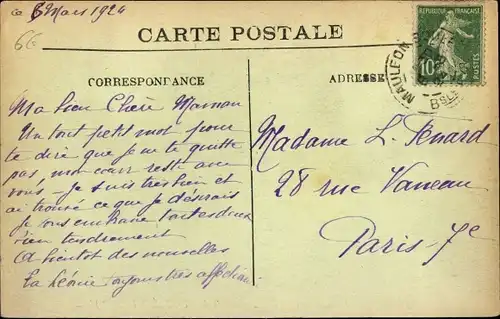 6 Mars 1924
66
CARTE POSTALE
REPUBLIQUE FRANÇAISE
10
POSTES
MAULEON
CORRESPONDANCE
ADRESSE
Ma bien Chère Maman
Un tout petit mot pour
te dire que je ne te quitte
pas, mon cœur reste avec
vous - Je suis très bien et
ai trouvé ce que je désirais
Je vous embrasse toutes deux
bien tendrement
A bientot des nouvelles
ta toujours très
Madame L. Penard
28 rue Vaneau
Paris-7e